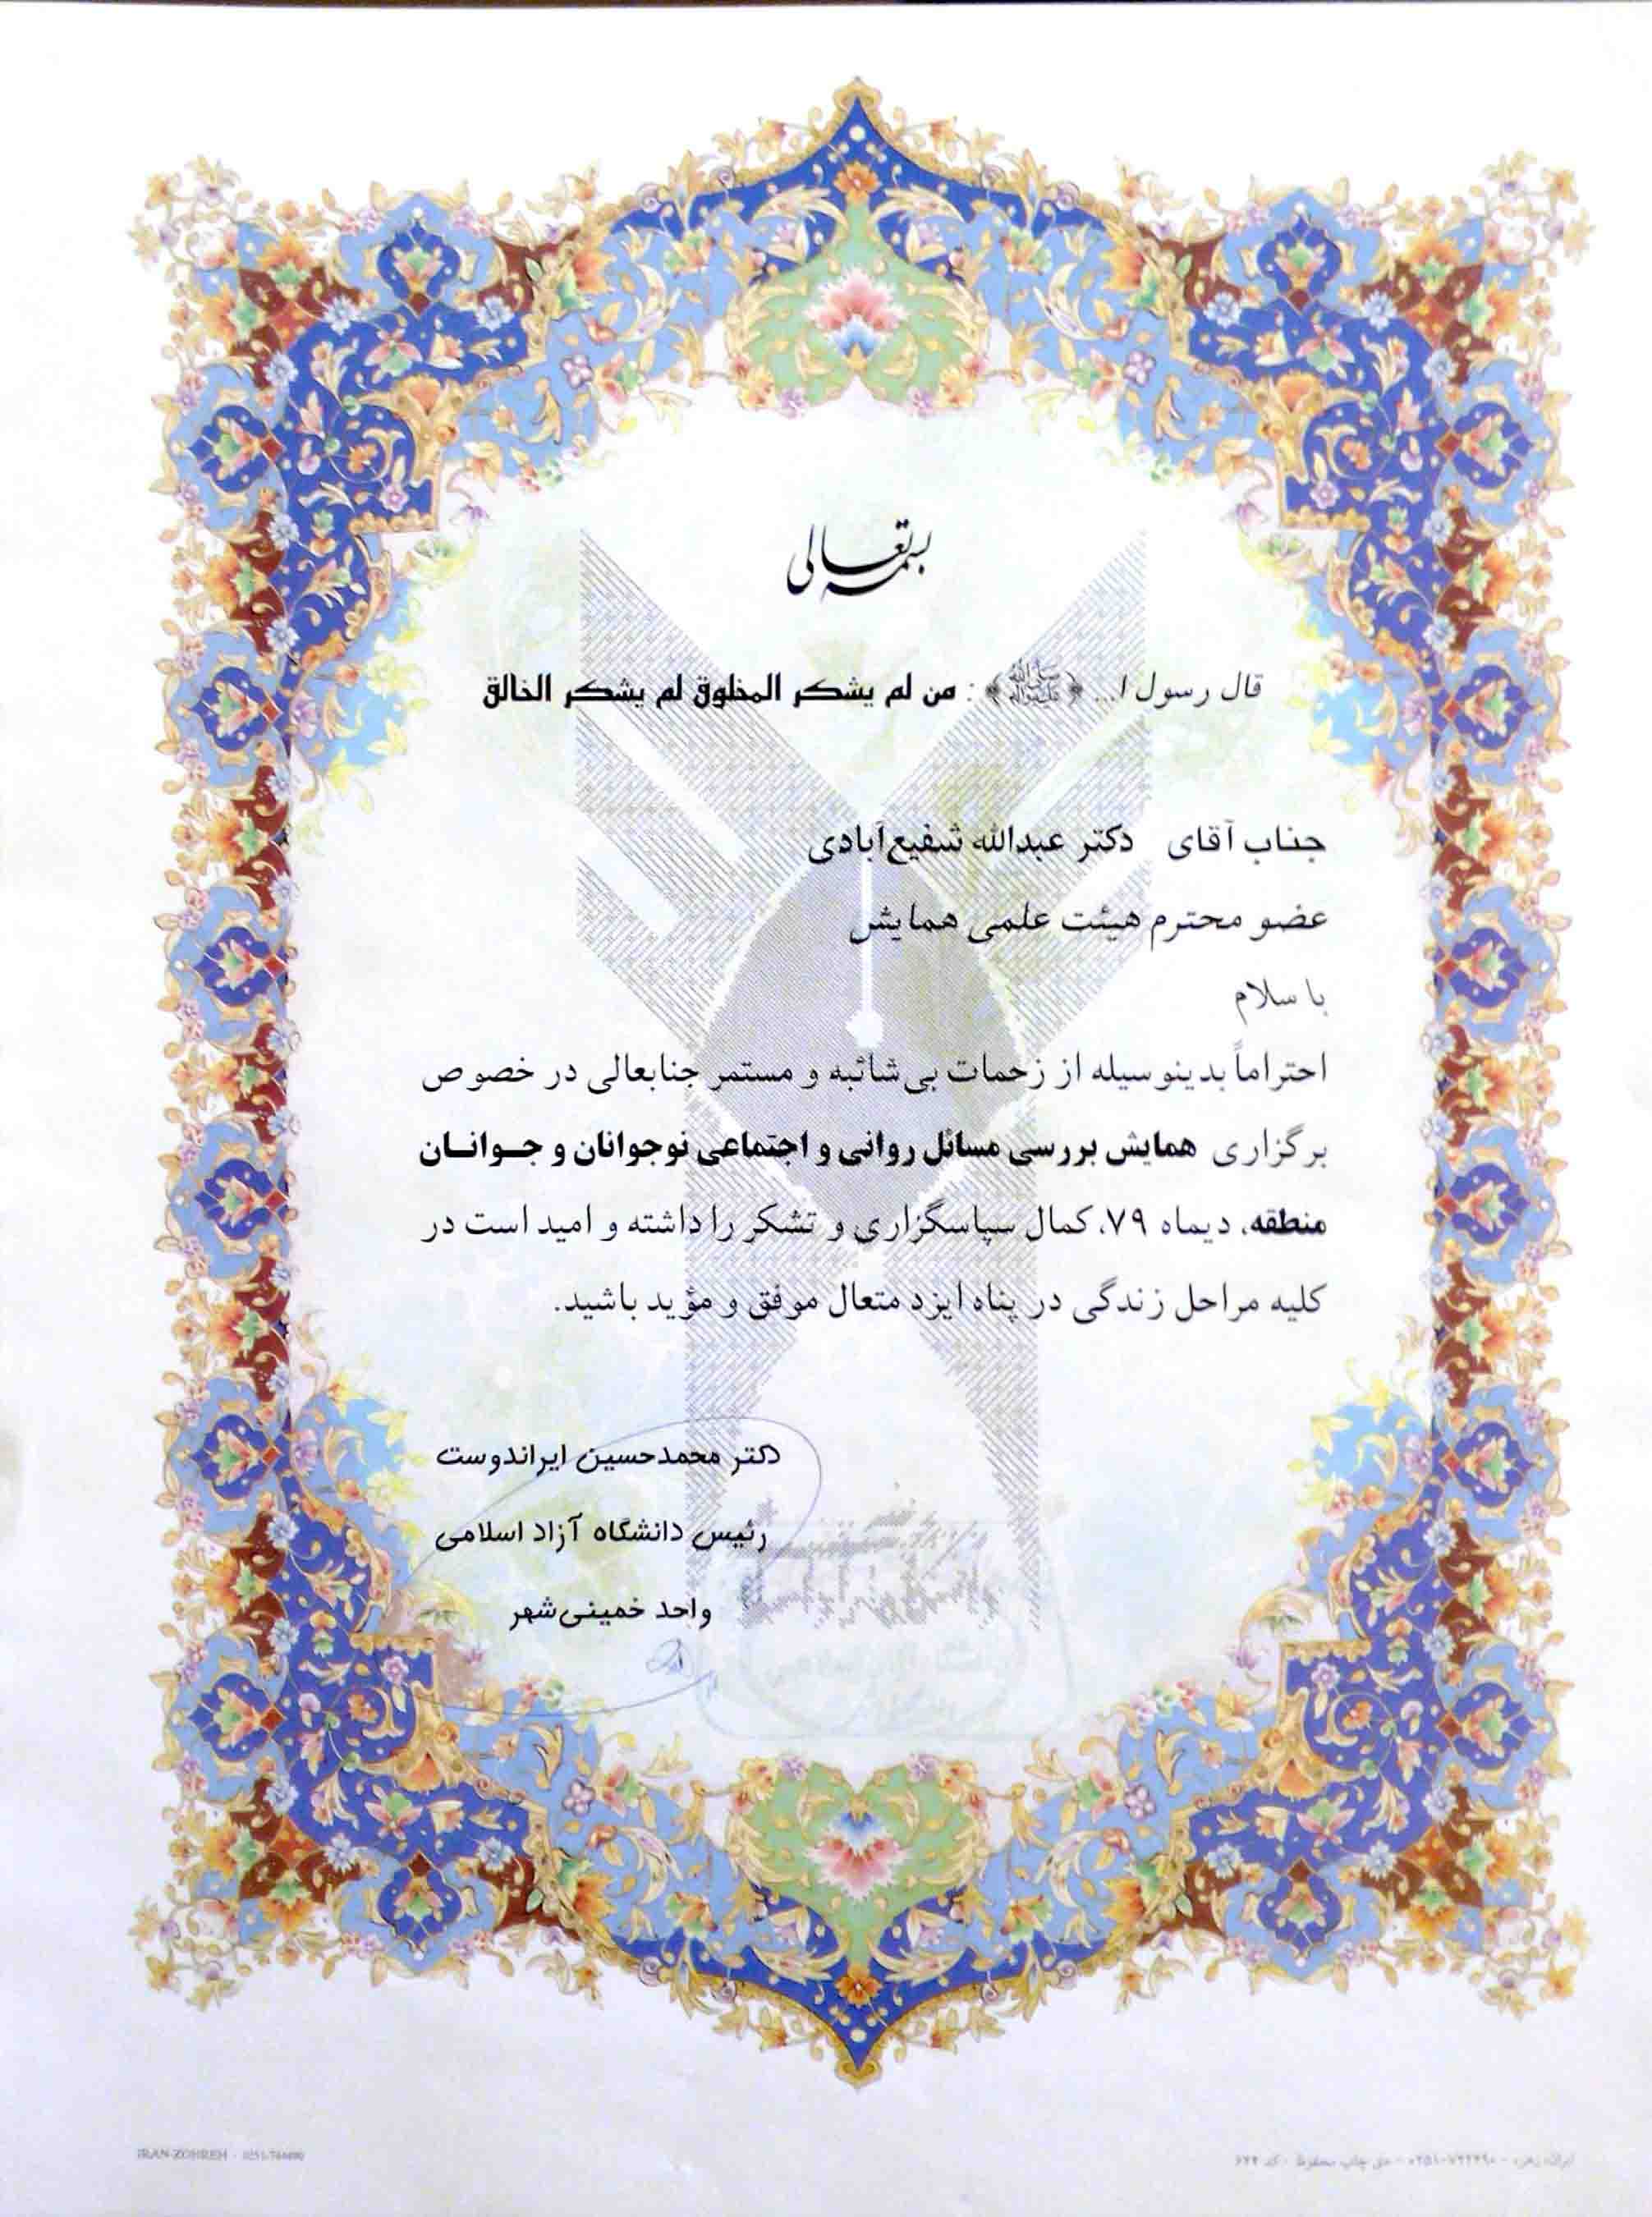 بسمه تعالی
قال رسول ا... ﴿ﷺ﴾ : من لم یشکر المخلوق لم یشکر الخالق
جناب آقای دکتر عبدالله شفیع‌آبادی
عضو محترم هیئت علمی همایش
با سلام
احتراماً بدینوسیله از زحمات بی‌شائبه و مستمر جنابعالی در خصوص
برگزاری همایش بررسی مسائل روانی و اجتماعی نوجوانان و جـوانـان
منطقه، دیماه ۷۹، کمال سپاسگزاری و تشکر را داشته و امید است در
کلیه مراحل زندگی در پناه ایزد متعال موفق و مؤید باشید.
دکتر محمدحسین ایراندوست
رئیس دانشگاه آزاد اسلامی
واحد خمینی‌شهر
IRAN-ZOHREH